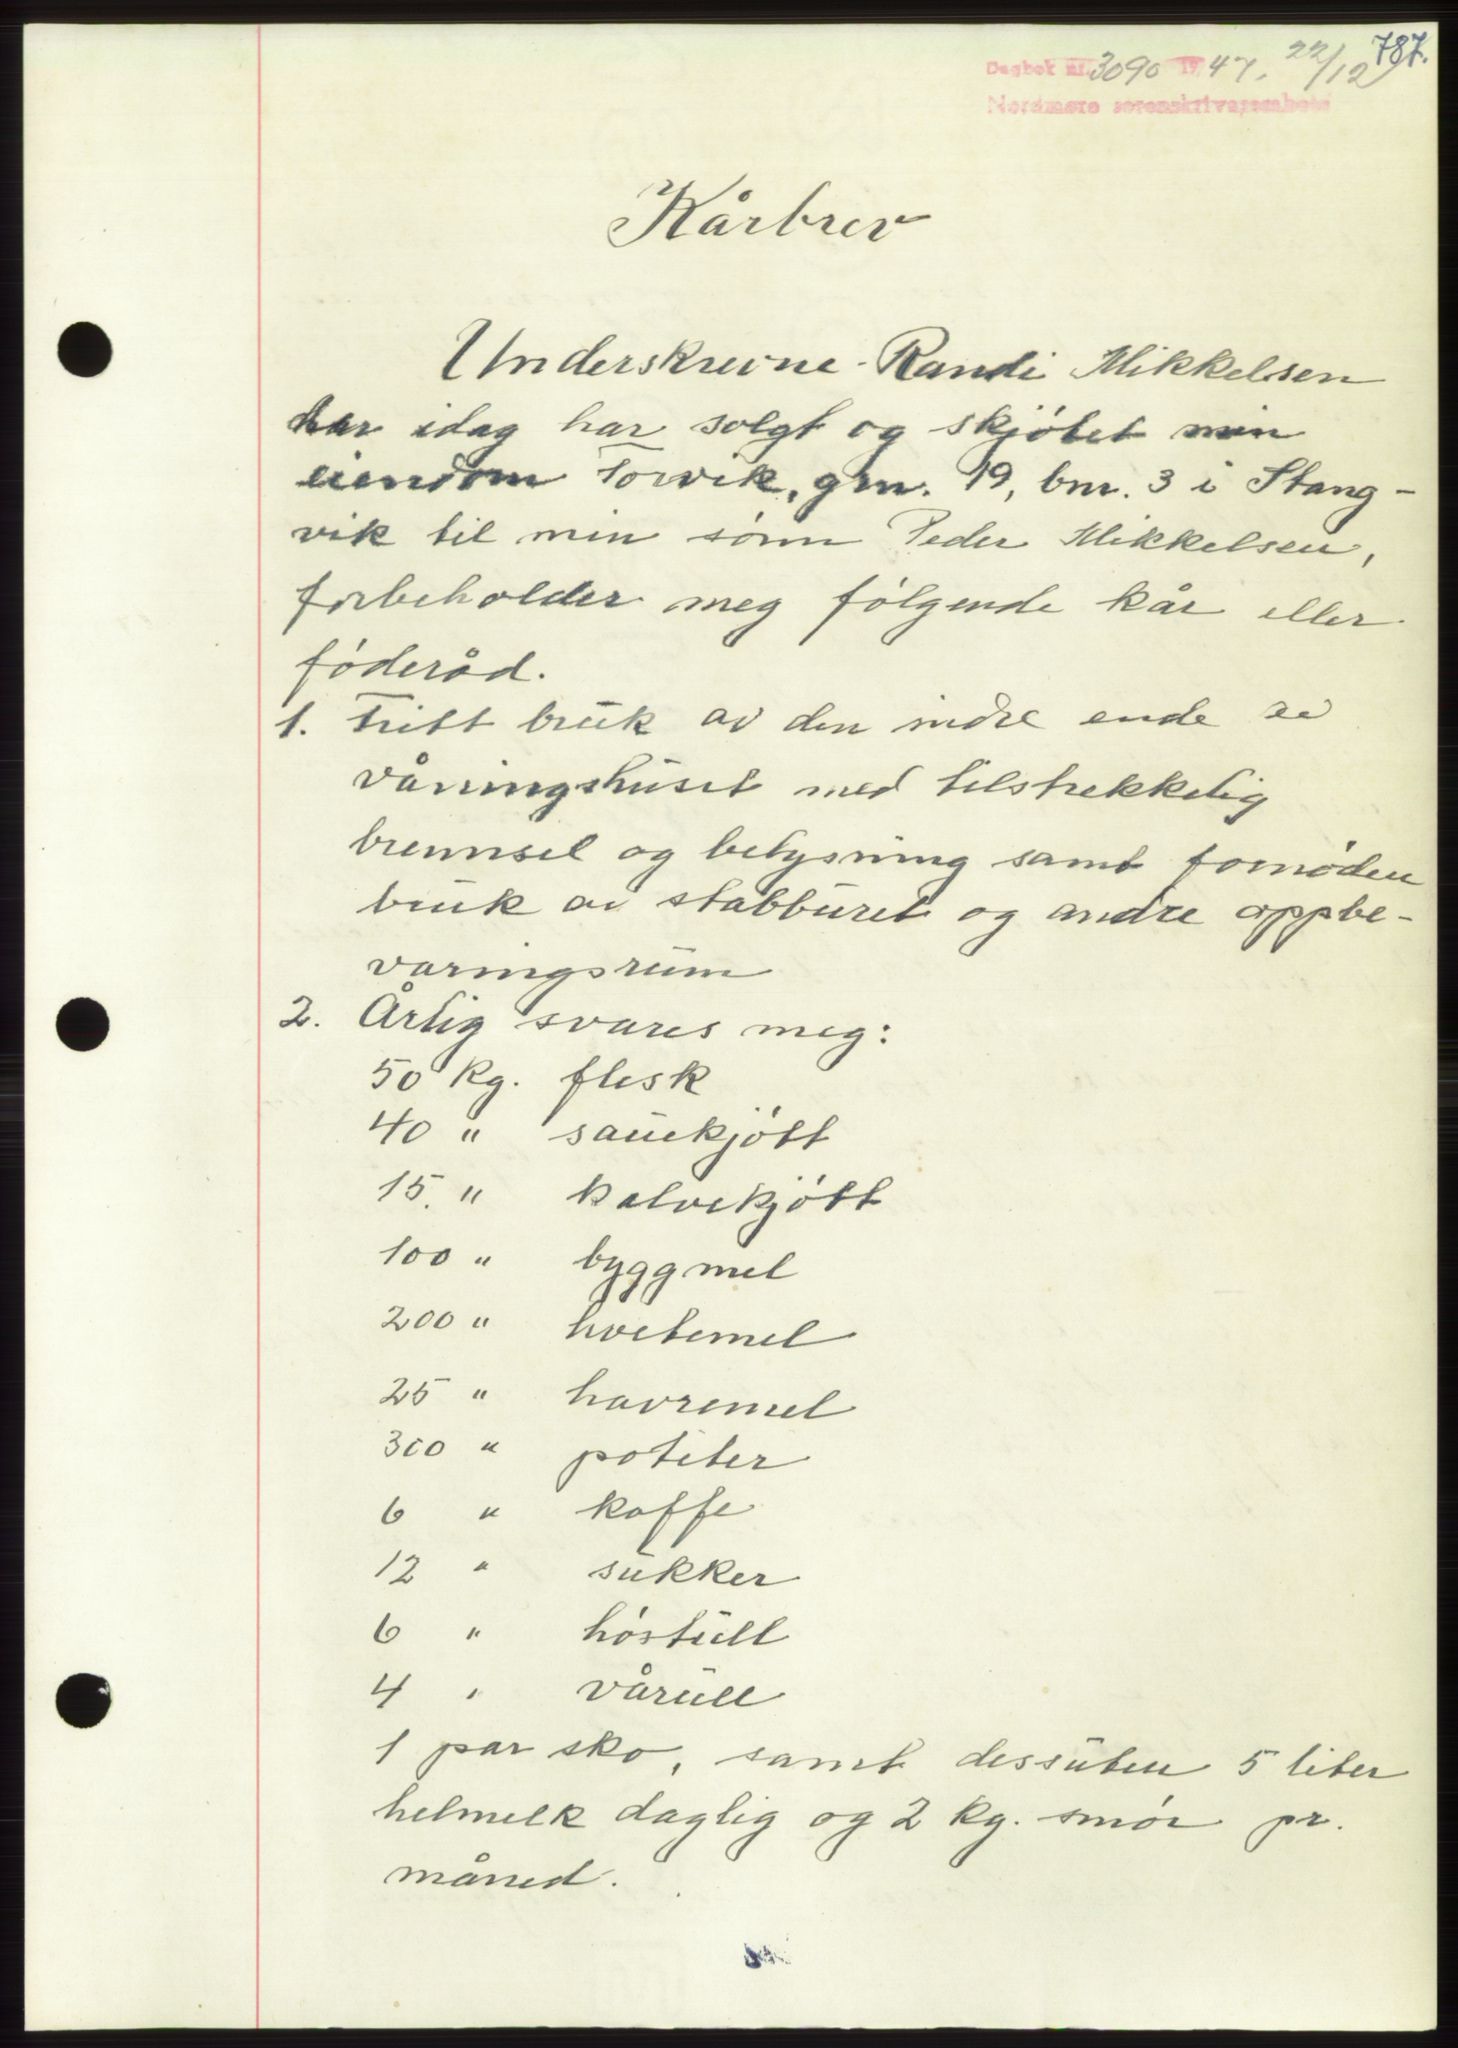 787.
Dagbok nr. 3090 1947. 22/12
Nordmøre sorenskriverembete
Kårbrev
Underskrevne Randi Mikkelsen
har idag har solgt og skjøtet min
eiendom Torvik, grn. 19, bnr. 3 i Stang-
vik til min sønn Peder Mikkelsen,
forbeholder meg følgende kår eller
føderåd.
1. Fritt bruk av den indre ende av
våningshuset med tilstrekkelig
brennsel og belysning samt fornøden
bruk av stabburet og andre oppbe-
varingsrum
2. Årlig svares meg:
50 kg. flesk
40 " sauekjøtt
15. " kalvekjøtt
100 " byggmel
200 " hvetemel
25 " havremel
300 " poteter
6 " kaffe
12 " sukker
6 " høstull
4 " vårull
1 par sko, samt dessuten 5 liter
helmelk daglig og 2 kg. smør pr.
måned.